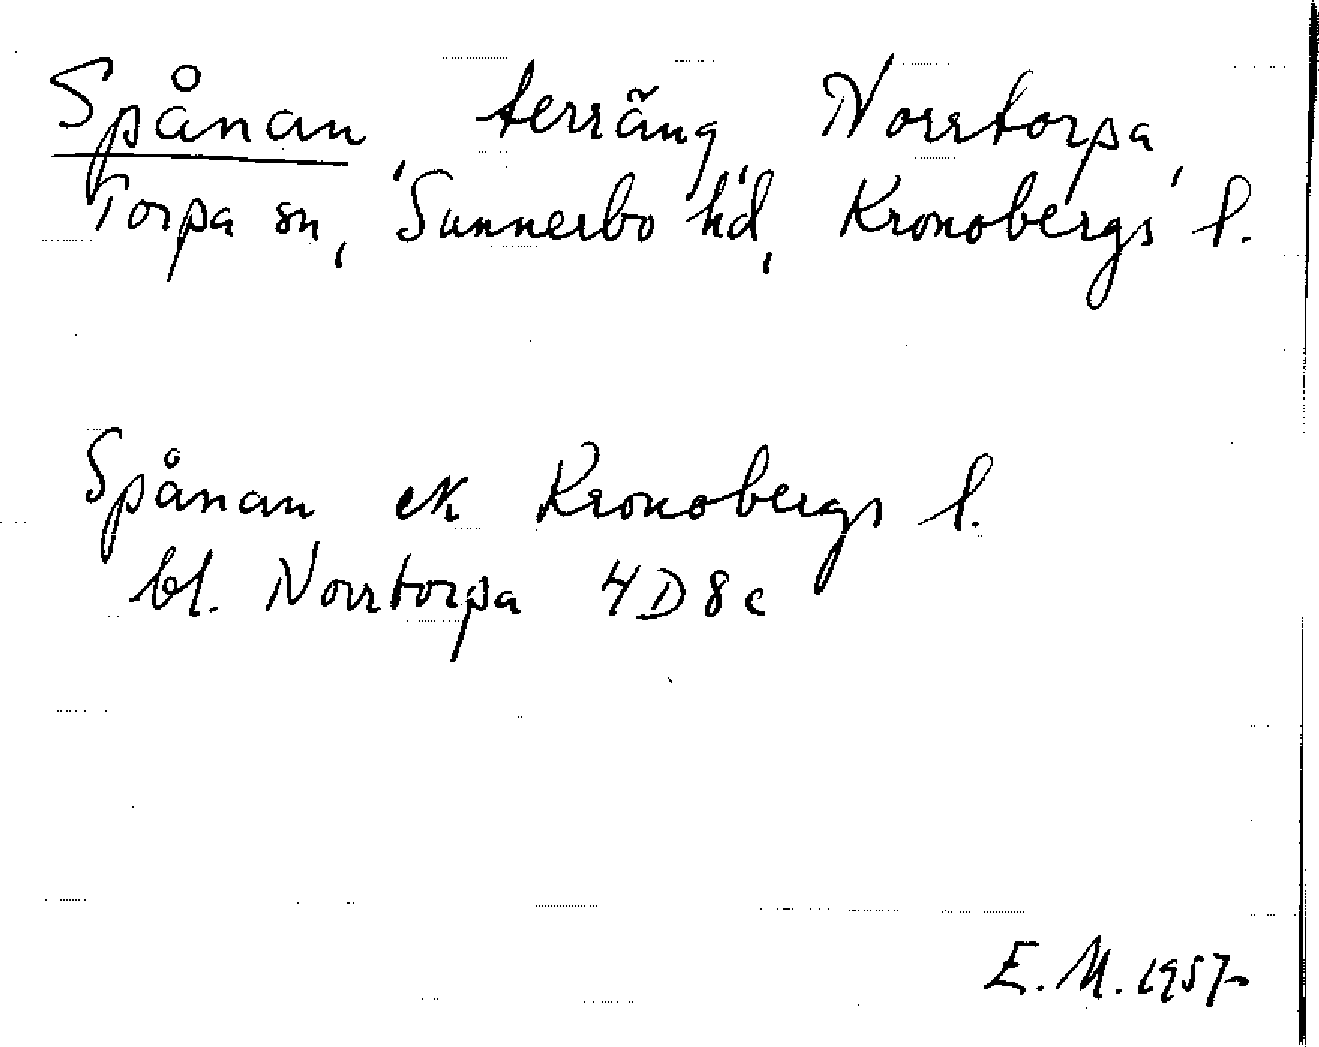 Spånan, terräng, Norrtorpa,
Torpa sn, Sunnerbo hd, Kronobergs l.
Spånan ek Kronobergs l.
bl. Norrtorpa 4D8c
E. M. 1957